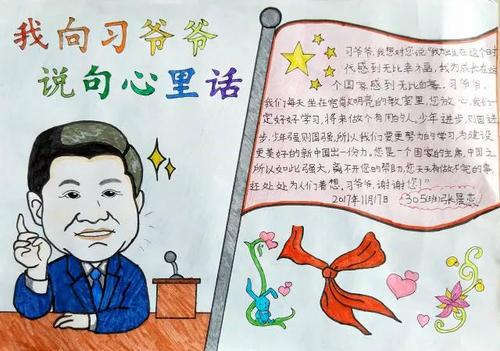 我向习爷爷
说句心里话
习爷爷,我想对您说"我为生在这个时
代感到无比幸福,我为成长在这
个国家感到无比自豪。习爷爷,
我们每天坐在宽敞明亮的教室里,您放心,我们一
定好好学习,将来做个有用的人。少年进步,则国进
步,少年强则国强,所以我们需更努力的学习,为建设
更美好的新中国出一份力。您是一个国家的主席,中国之
所以如此强大,离不开您的帮助,您天天有做不完的事
还处处为人们着想,习爷爷,谢谢您!"
2017年11月17日 305班张